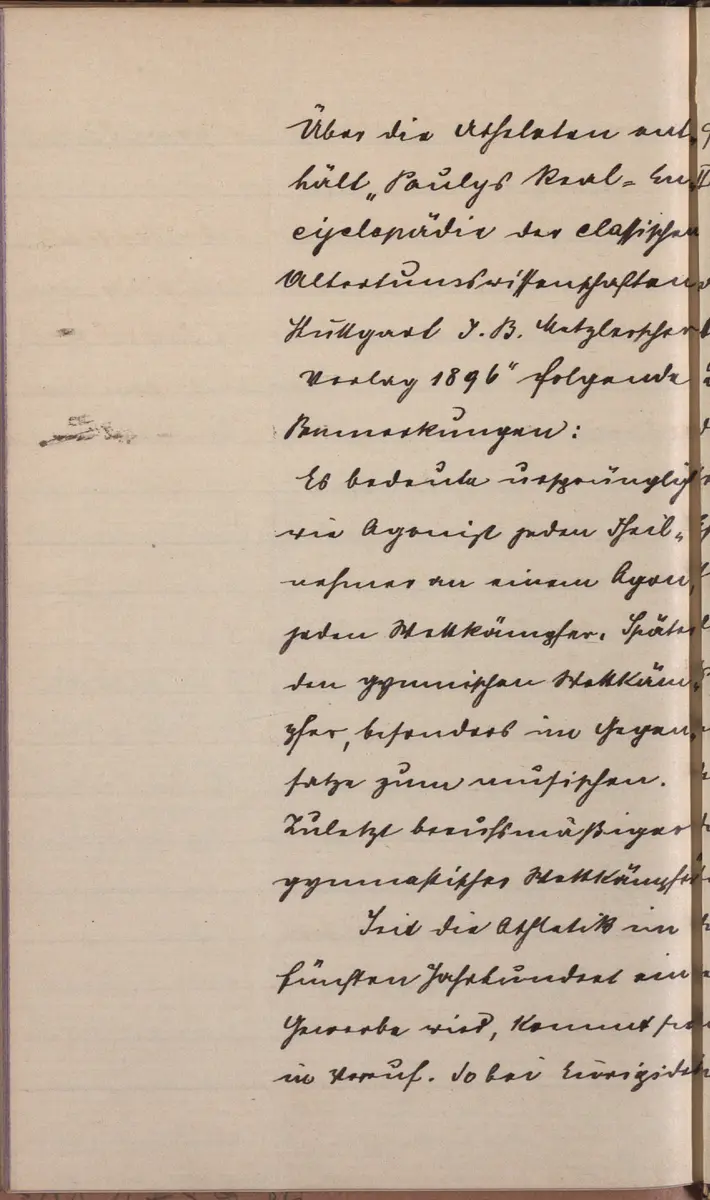 Über die Atheleten ent-
hält „Paulys Real-En-
cyclopädie der classischen
Altertumswissenschaften
Stuttgart J. B. Metzlerscher
Verlag 1896" folgende
Bemerkungen:
Es bedeute ursprünglich
wie Agonist jeden Theil-
nehmer an einem Agon,
jeden Wettkämpfer. Später
den gymnischen Wettkäm-
pfer, besonders im Gegen-
satze zum musischen.
Zuletzt berufsmäßiger
gymnastischer Wettkämpfer
Seit die Athletik im
fünften Jahrhundert ein
Gewerbe wird, kommt sie
in Verruf. So bei Euripides